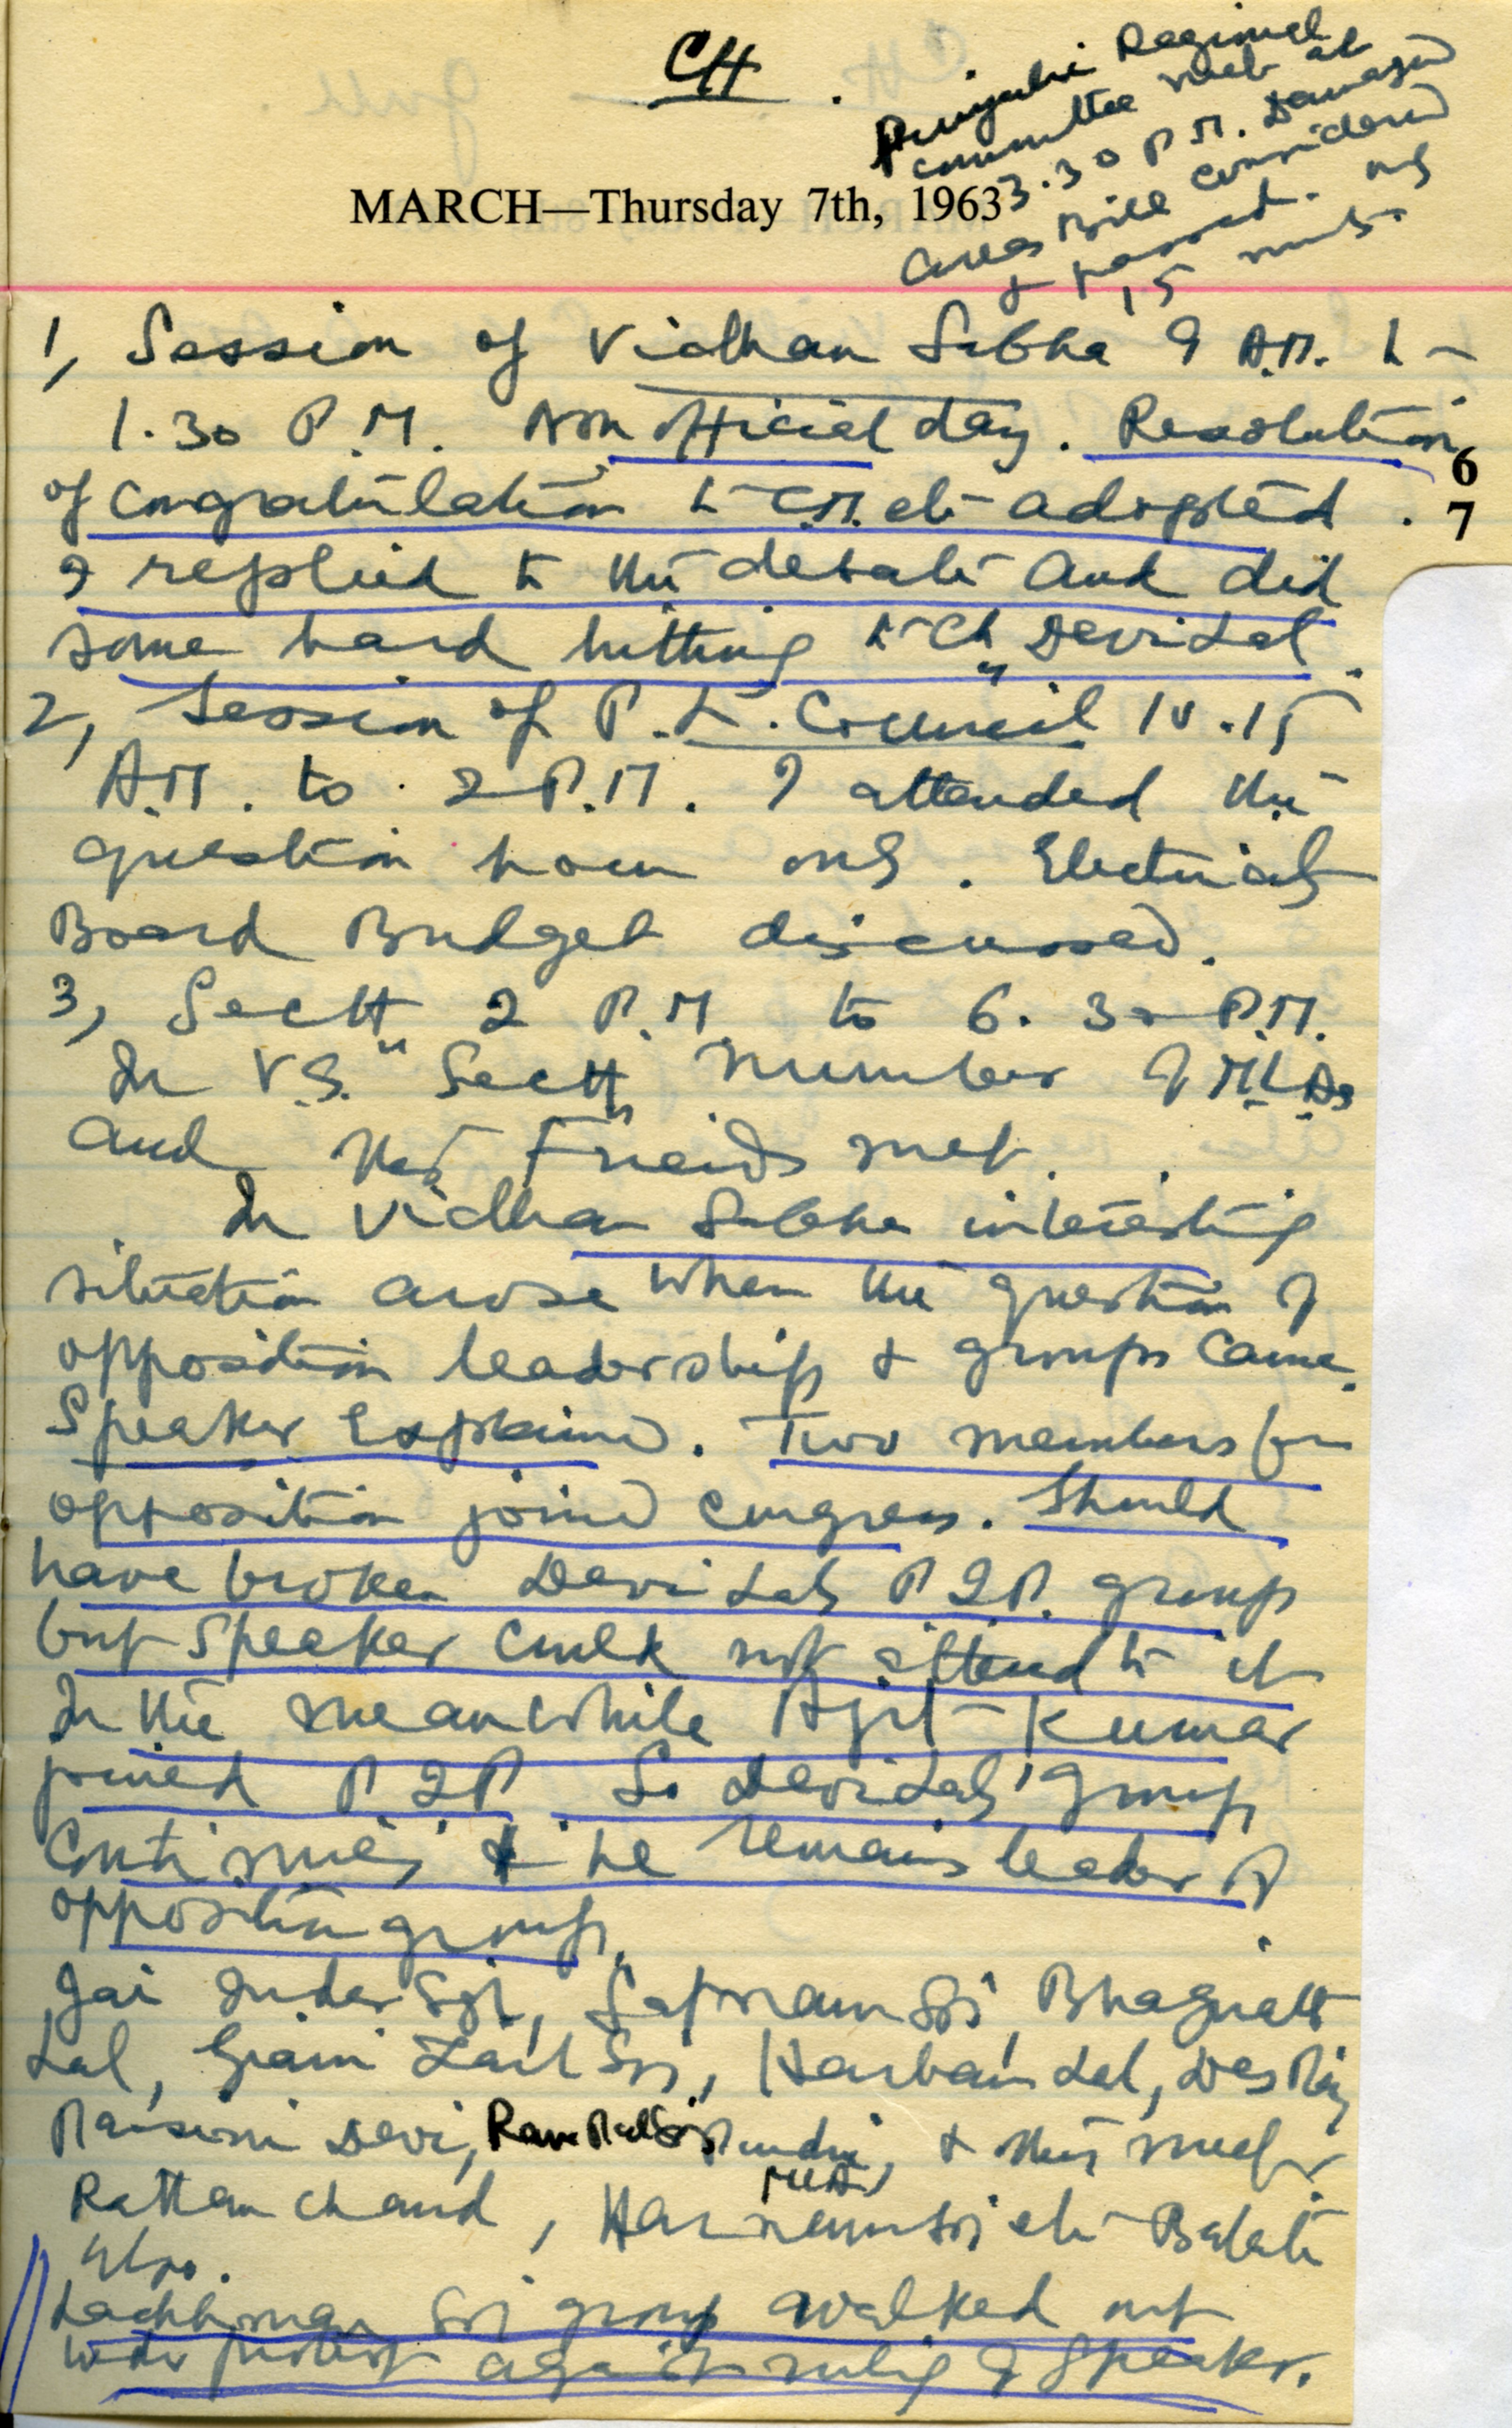 CH.
Punjabi Regional
Committee met at
3.30 P.M. Damaged
Areas Bill considered
& passed. only
15 mts.
MARCH—Thursday 7th, 1963
1, Session of Vidhan Sabha 9 A.M. to
1.30 P.M. Non official day. Resolution
6
of Congratulation to C.M. etc adopted.
7
I replied to the debate and did
some hard hitting to Ch. Devi Lal.
2, Session of P.L. Council 10.15
A.M. to 2 P.M. I attended the
question hour only. Electricity
Board Budget discussed.
3, Sectt 2 P.M. to 6.30 P.M.
In V.S. Sectt number of M.L.As
and Friends met.
In Vidhan Sabha interesting
situation arose when the question of
opposition leadership & groups came.
Speaker Explained. Two members from
opposition joined Congress. Should
have broken Devi Lal's P.I.P. group
but Speaker could not attend to it
In the meanwhile Ajit Kumar
joined P.I.P. So Devi Lal's group
Continues & he remains leader of
opposition group.
Jai Inder Sgh, Satnam Sgh, Bhagwat
Lal, Giani Zail Sgh, Harbans Lal, Des Raj
Devi, & met
MLA
Rattan Chand, Harnam Sgh etc Batala
also.
Lachhman Sgh group walked out
under protest against ruling of Speaker.